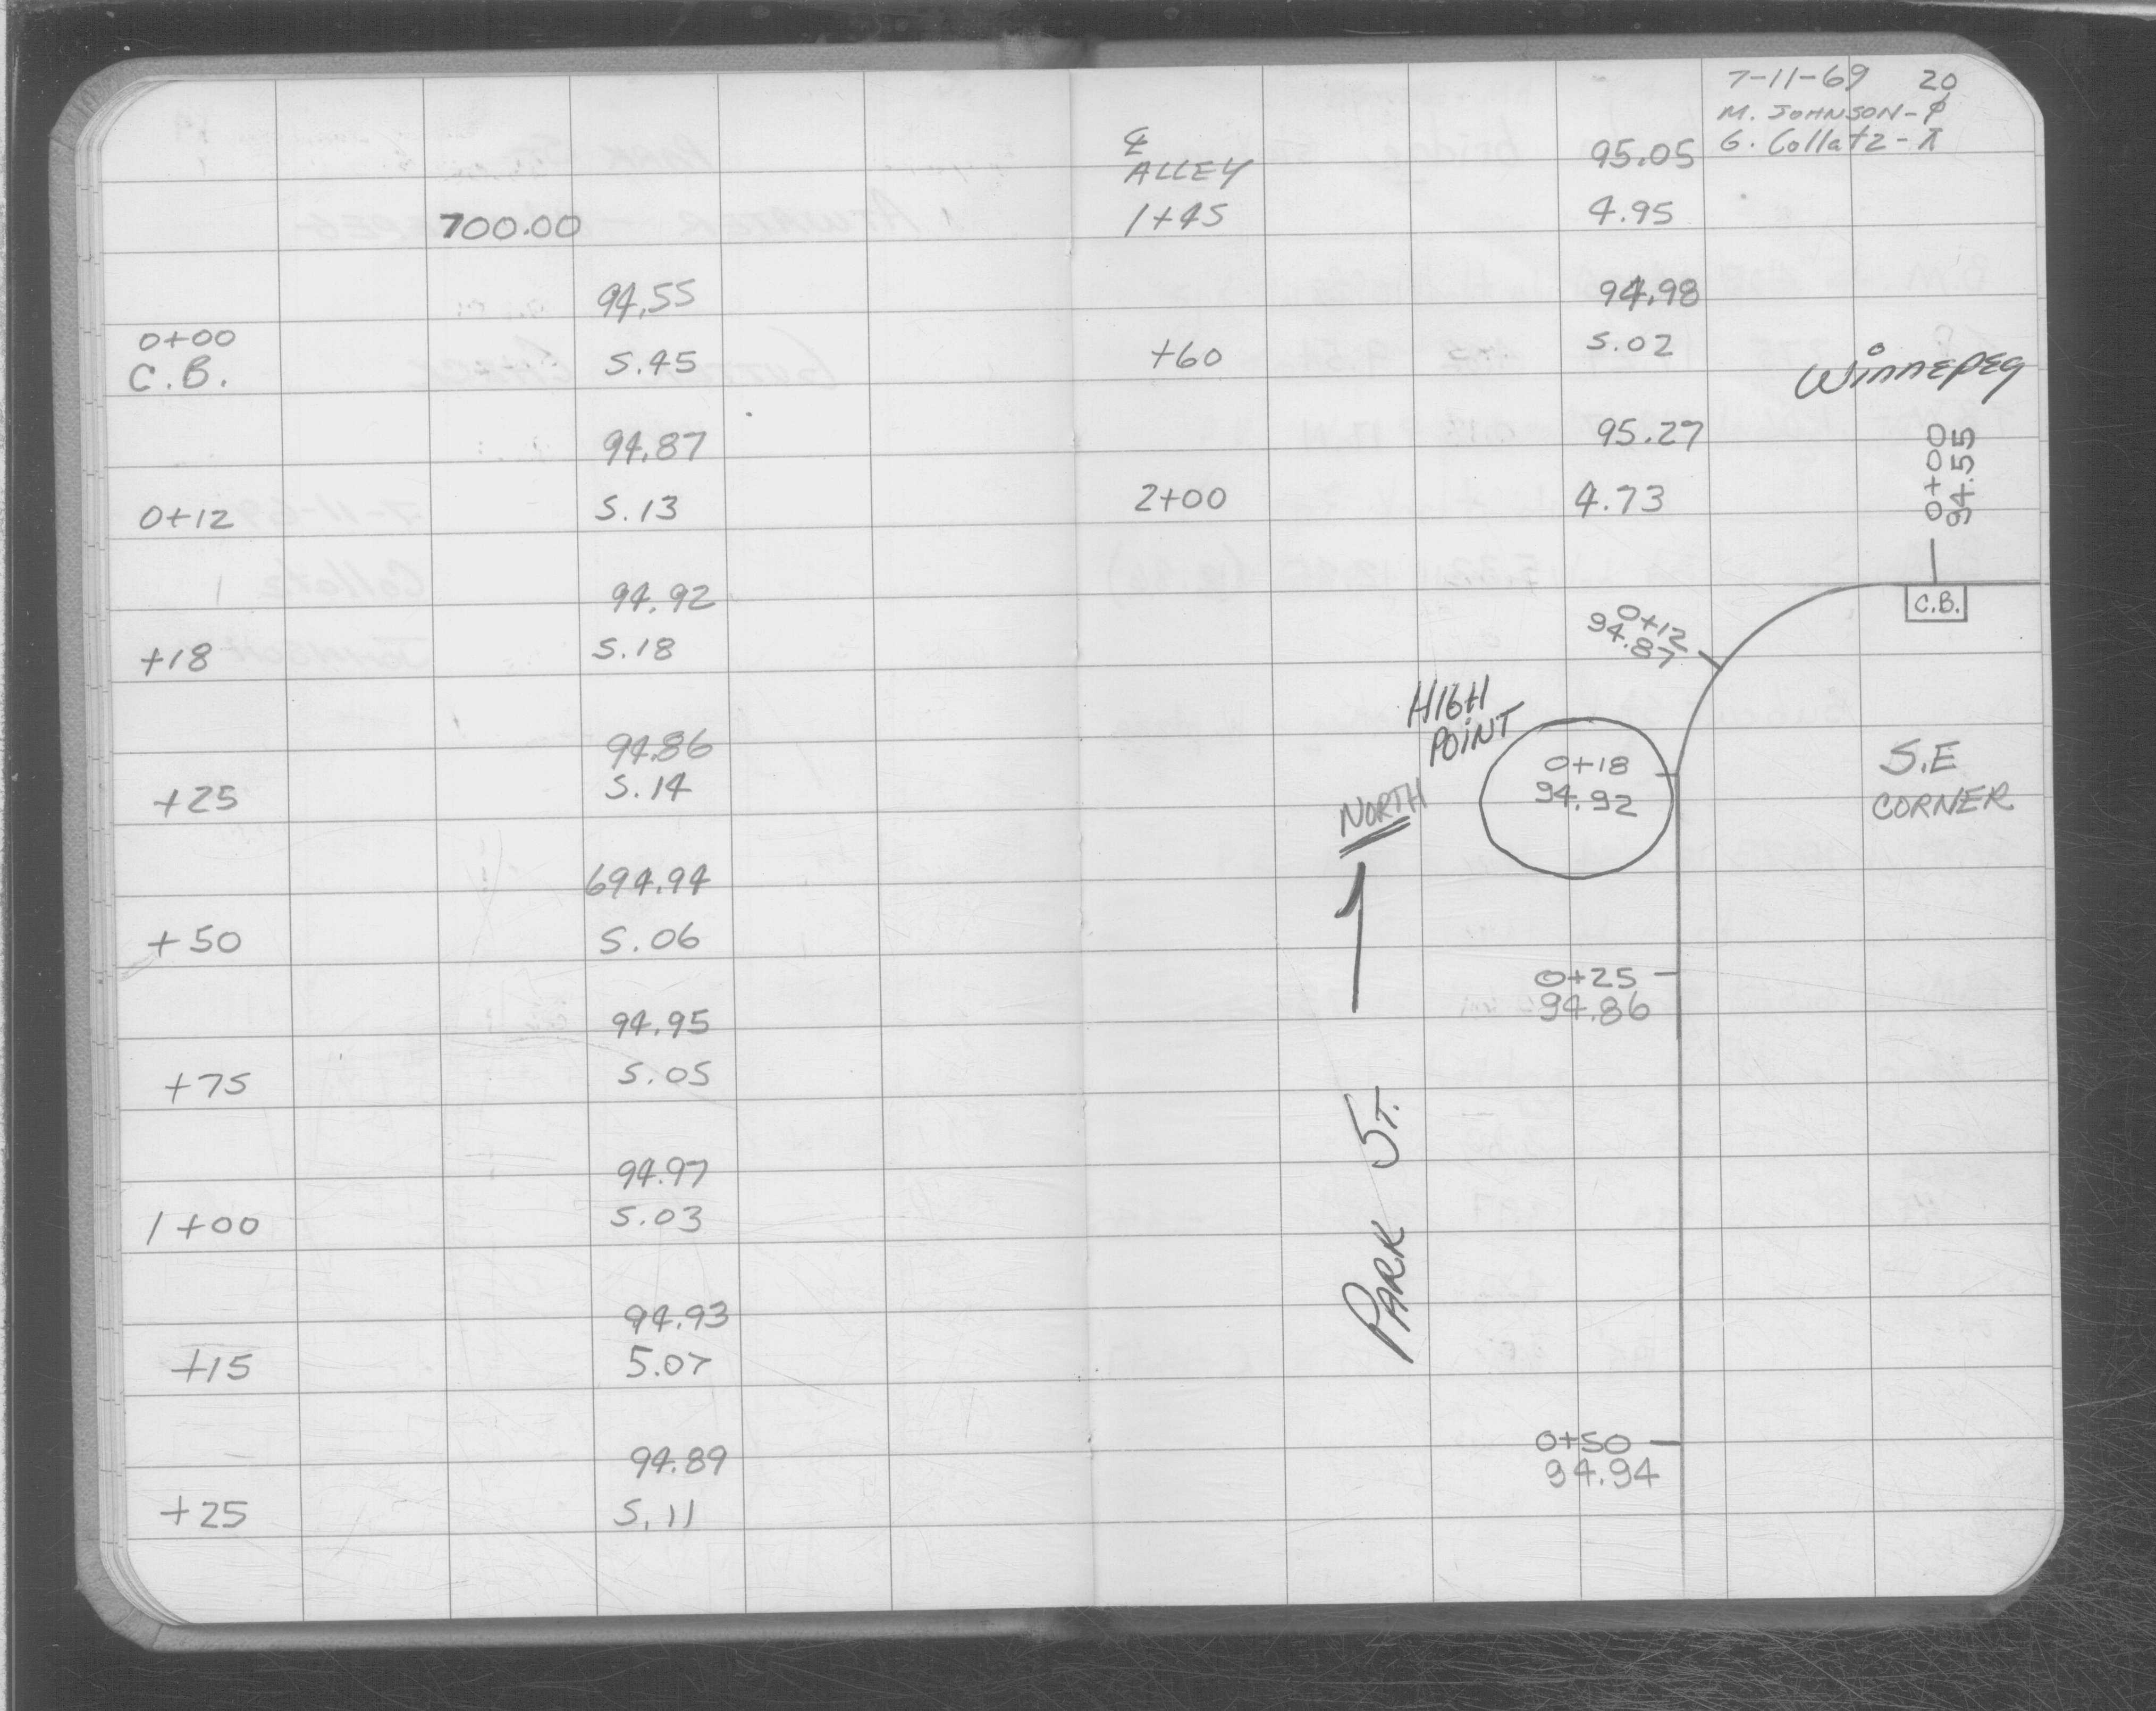 700.00
94.55
0+00
C.B.
5.45
94.87
0+12
5.13
94.92
+18
5.18
94.86
+25
5.14
694.94
+50
5.06
94.95
+75
5.05
94.97
1+00
5.03
94.93
+15
5.07
94.89
+25
5.11
7-11-69 20
M. JOHNSON-
G. Collatz-⊼
℄
ALLEY
95.05
1+45
4.95
94.98
+60
5.02
95.27
2+00
4.73
WinnEpEg
0+00
94.55
C.B.
0+12
94.87
HIGH
POINT
0+18
94.92
S.E
CORNER
NORTH
0+25
94.86
PARK ST.
0+50
94.94